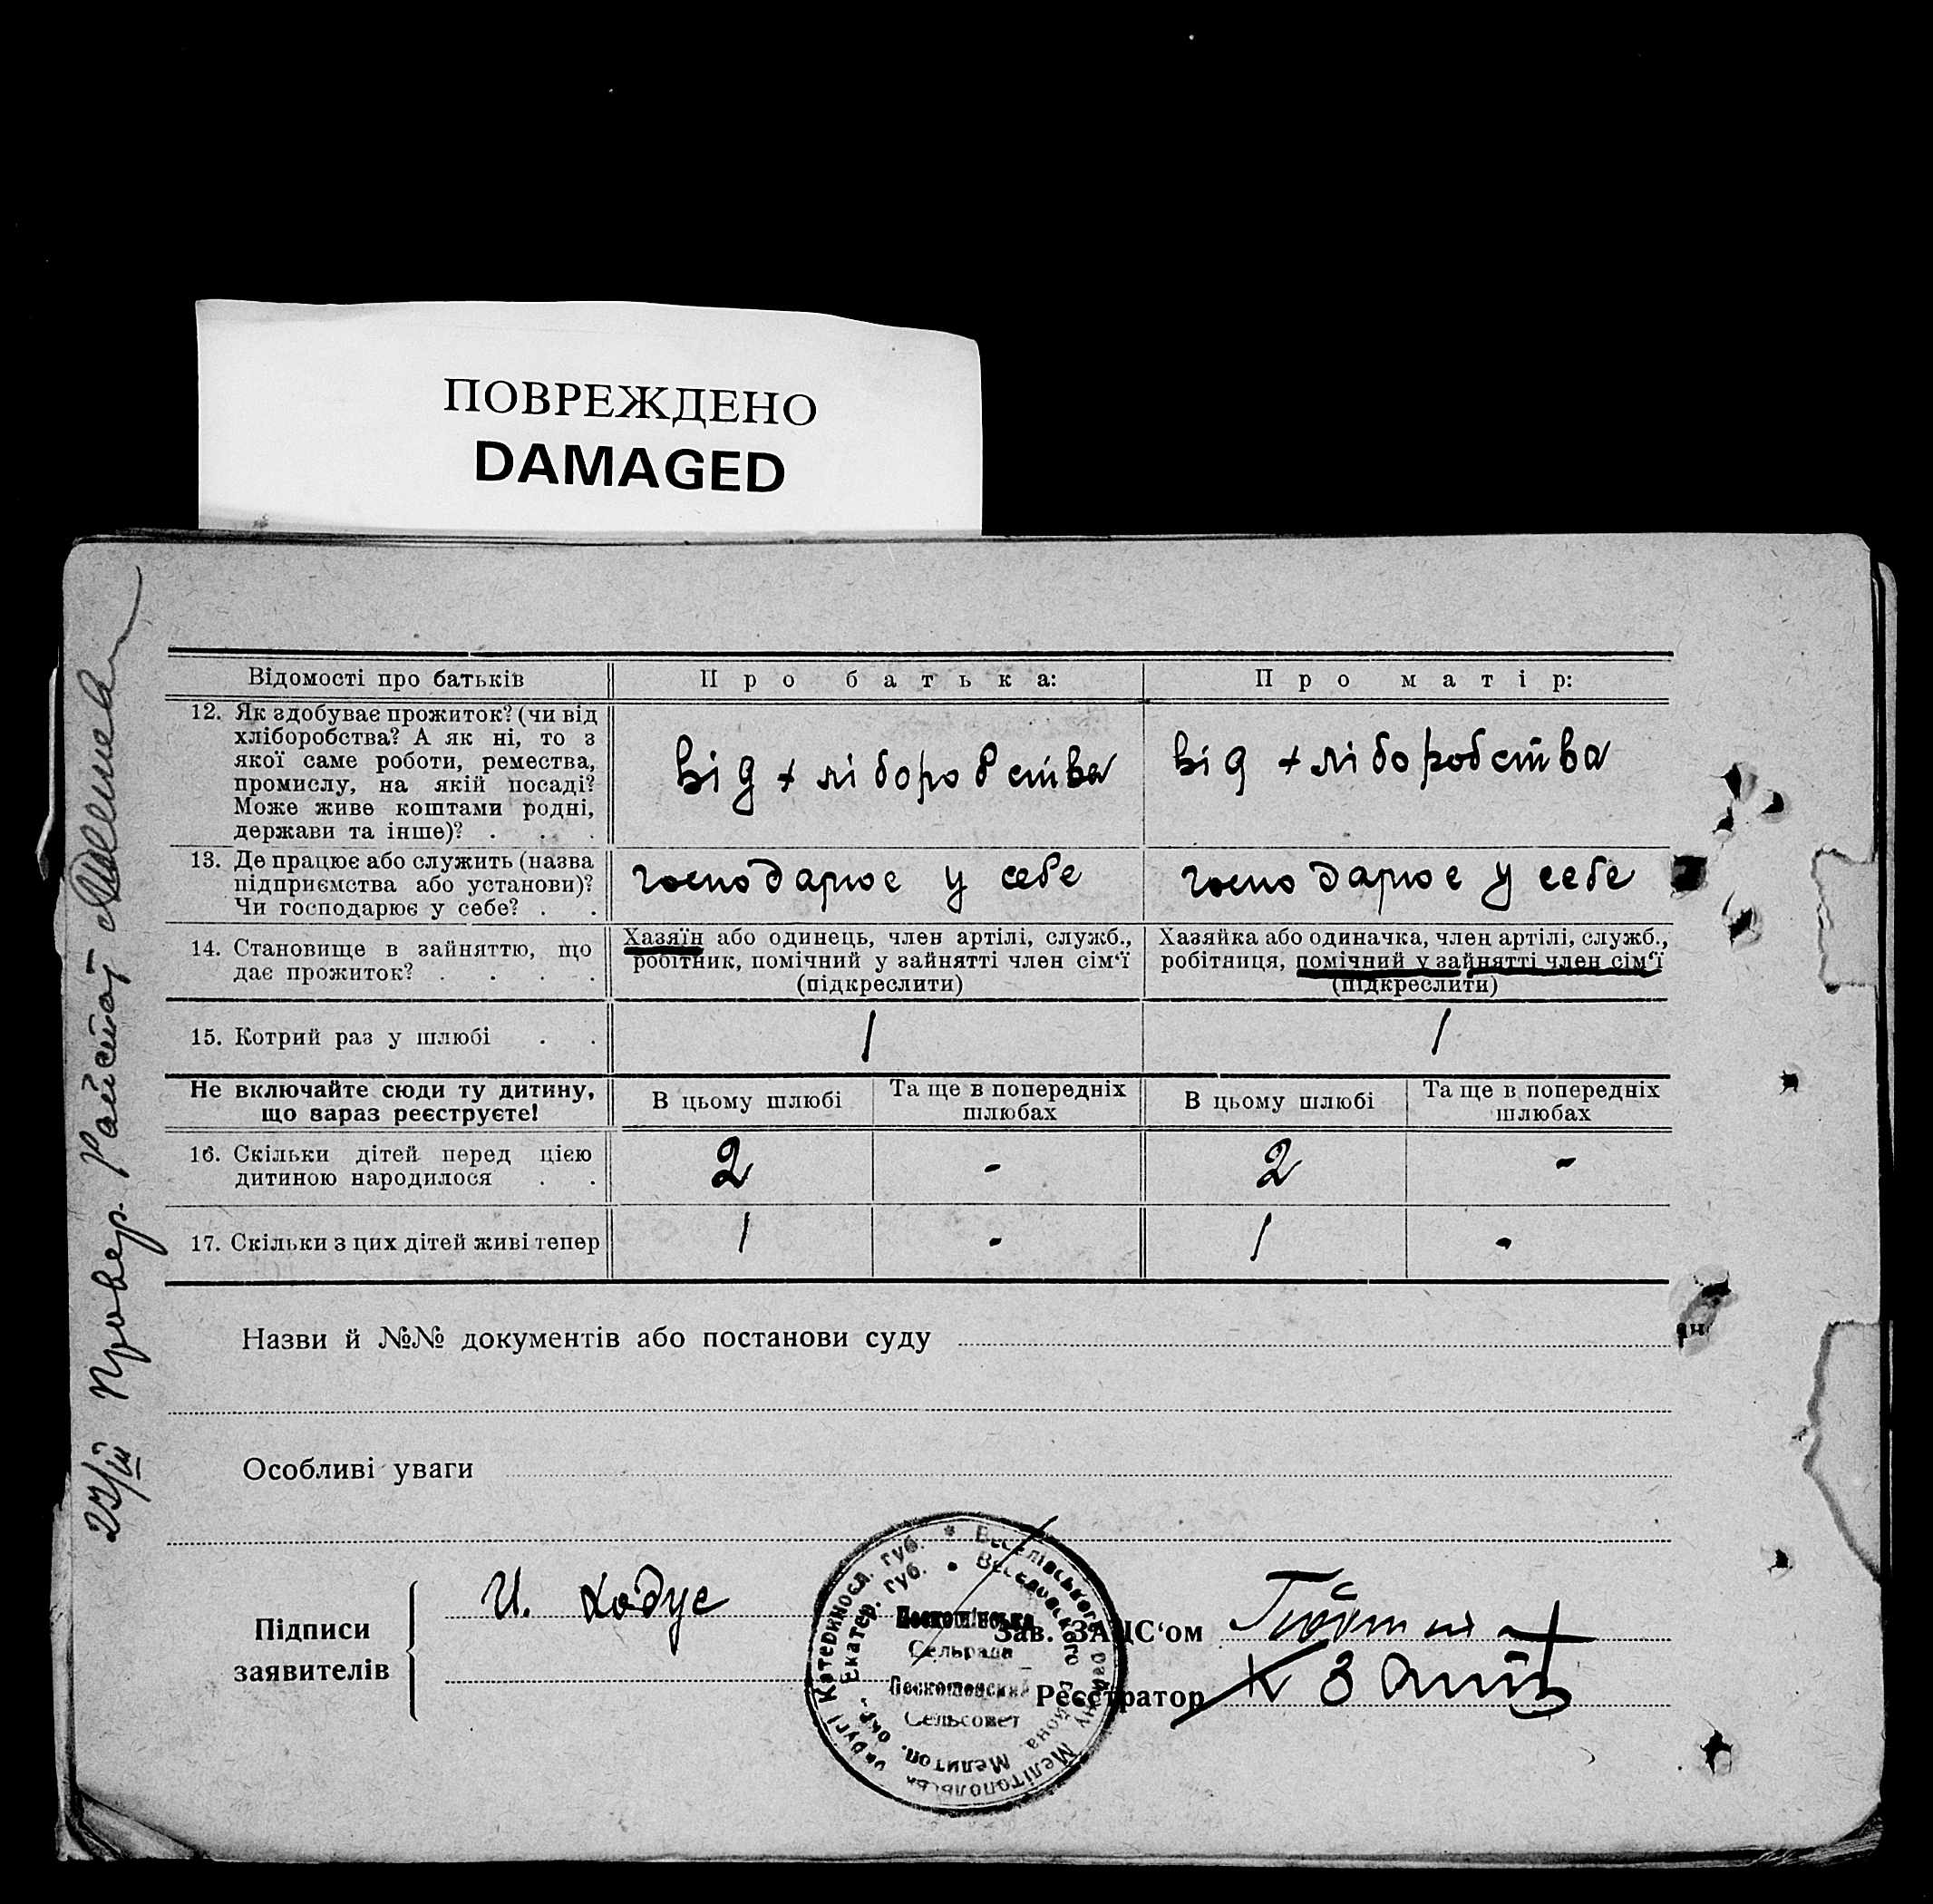 ПОВРЕЖДЕНО
DAMAGED
Відомості про батьків
Про батька:
Про матір:
12. Як здобуває прожиток? (чи від
хліборобства? А як ні, то з
якої саме роботи, ремества,
промислу, на якій посаді?
Може живе коштами родні,
держави та інше)? . . .
від хліборобства
від хліборобства
13. Де працює або служить (назва
підприємства або установи)?
Чи господарює у себе? . .
господарює у себе
господарює у себе
14. Становище в зайняттю, що
дає прожиток? . . . .
Хазяїн або одинець, член артілі, служб.,
робітник, помічний у зайнятті член сім‘ї
(підкреслити)
Хазяйка або одиначка, член артілі, служб.,
робітниця, помічний у зайнятті член сім‘ї
(підкреслити)
15. Котрий раз у шлюбі . .
1
1
Не включайте сюди ту дитину,
що зараз реєструєте!
В цьому шлюбі
Та ще в попередніх
шлюбах
В цьому шлюбі
Та ще в попередніх
шлюбах
16. Скільки дітей перед цією
дитиною народилося . .
2
-
2
-
17. Скільки з цих дітей живі тепер
1
-
1
-
Назви й №№ документів або постанови суду
Особливі уваги
Підписи
заявителів
И. Ходус
Зав. ЗАЦС‘ом
Реєстратор
Веселівського району Мелітопольськ. округі Катериносл. Губ.
Веселовского района Мелитоп. окр. Екатер. Губ.
Сельрада
Сельсовет
23/III Провер. Райстат